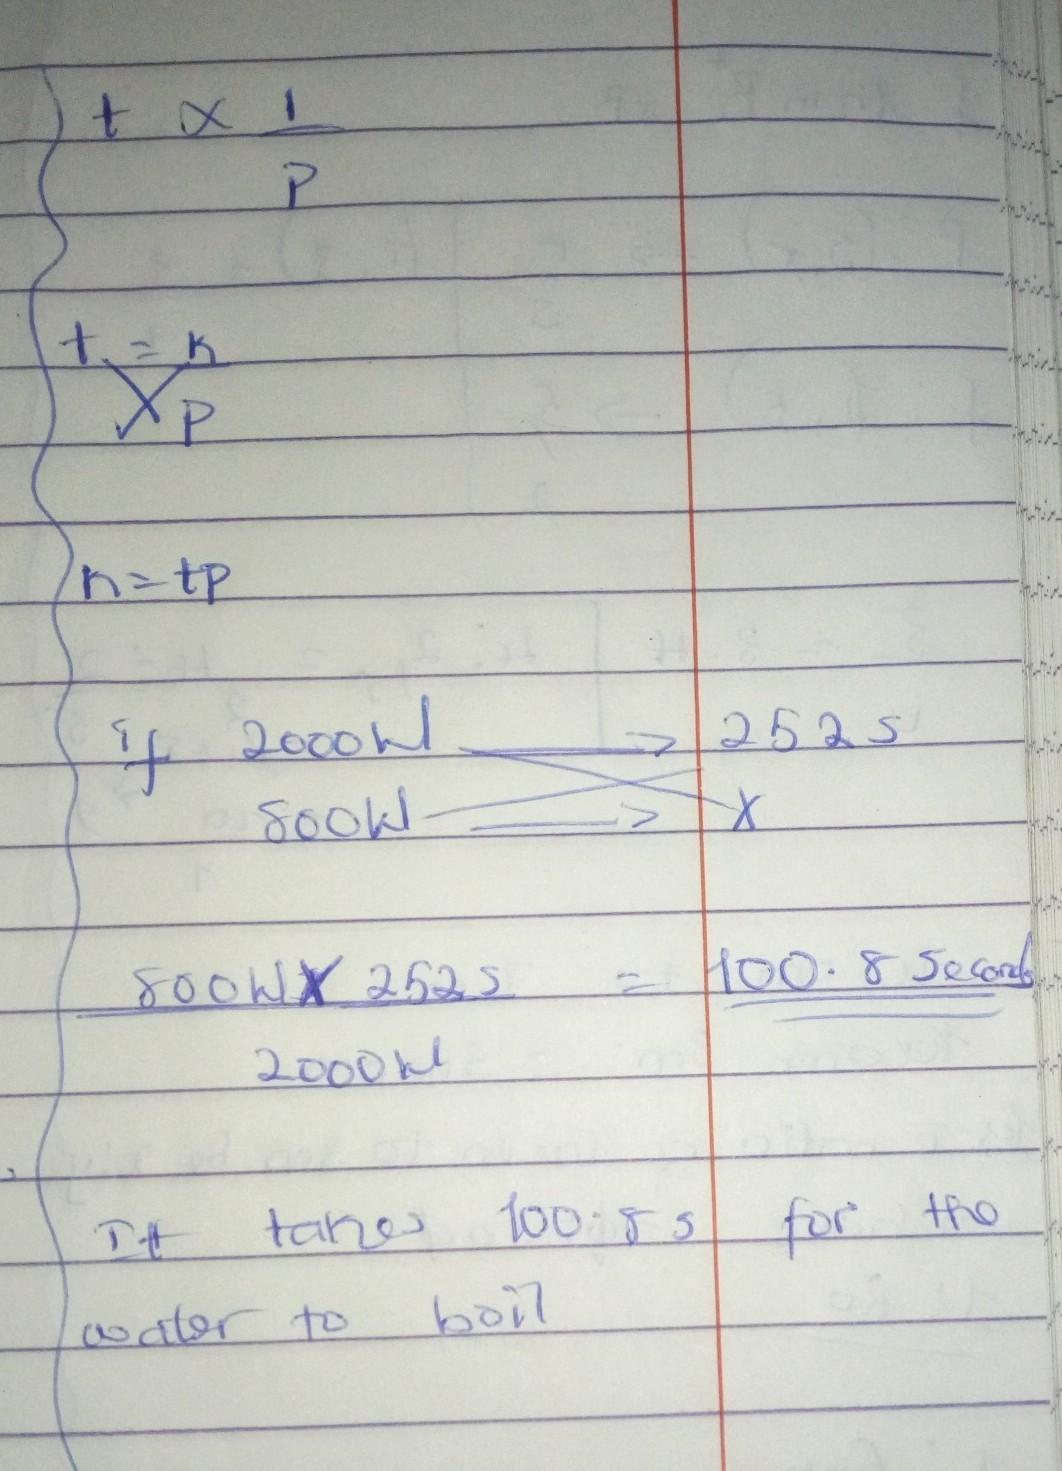 t ∝ 1
P
t = k
P
k = tp
if 2000W → 252s
800W → x
800W x 252s = 100.8 Seconds
2000W
It takes 100.8s for the
water to boil